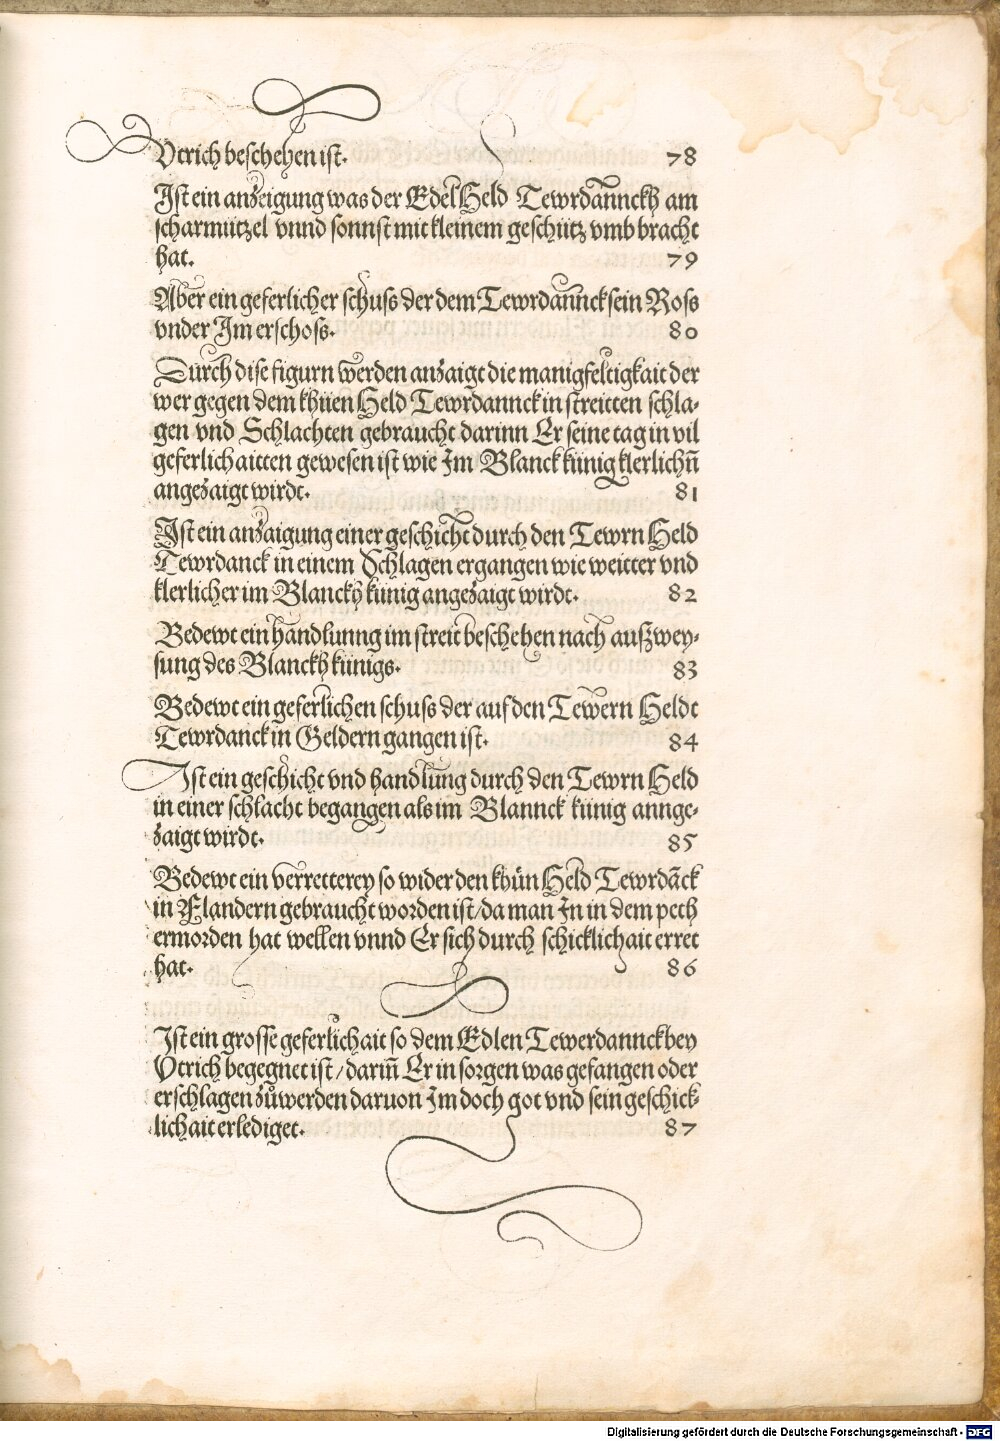 Vtrich beschehen ist. 78
Ist ein anzeigung was der Edel Held Tewrdannckh am
scharmützel vnnd sonnst mit kleinem geschütz vmb bracht
hat. 79
Aber ein geferlicher schuss der dem Tewrdannck sein Ross
vnder Im erschoss. 80
Durch dise figurn werden anzaigt die manigfeltigkait der
wer gegen dem khüen Held Tewrdannck in streitten schla-
gen vnd Schlachten gebraucht darinn Er seine tag in vil
geferlichaitten gewesen ist wie Im Blanck künig klerlichn̄
angezaigt wirdt. 81
Ist ein anzaigung einer geschicht durch den Tewrn Held
Tewrdanck in einem Schlagen ergangen wie weitter vnd
klerlicher im Blanckh künig angezaigt wirdt. 82
Bedewt ein handlunng im streit beschehen nach außwey-
sung des Blanckh künigs. 83
Bedewt ein geferlichen schuss der auf den Tewern Heldt
Tewrdanck in Geldern gangen ist. 84
Ist ein geschicht vnd handlung durch den Tewrn Held
in einer schlacht begangen als im Blannck künig annge-
zaigt wirdt. 85
Bedewt ein verretterey so wider den khün Held Tewrdāck
in Flandern gebraucht worden ist/da man In in dem pech
ermorden hat wellen vnnd Er sich durch schicklichait erret
hat. 86
Ist ein grosse geferlichait so dem Edlen Tewerdannck bey
Vtrich begegnet ist/darin̄ Er in sorgen was gefangen oder
erschlagen zůwerden daruon Im doch got vnd sein geschick-
lichait erlediget. 87
Digitalisierung gefördert durch die Deutsche Forschungsgemeinschaft - DFG